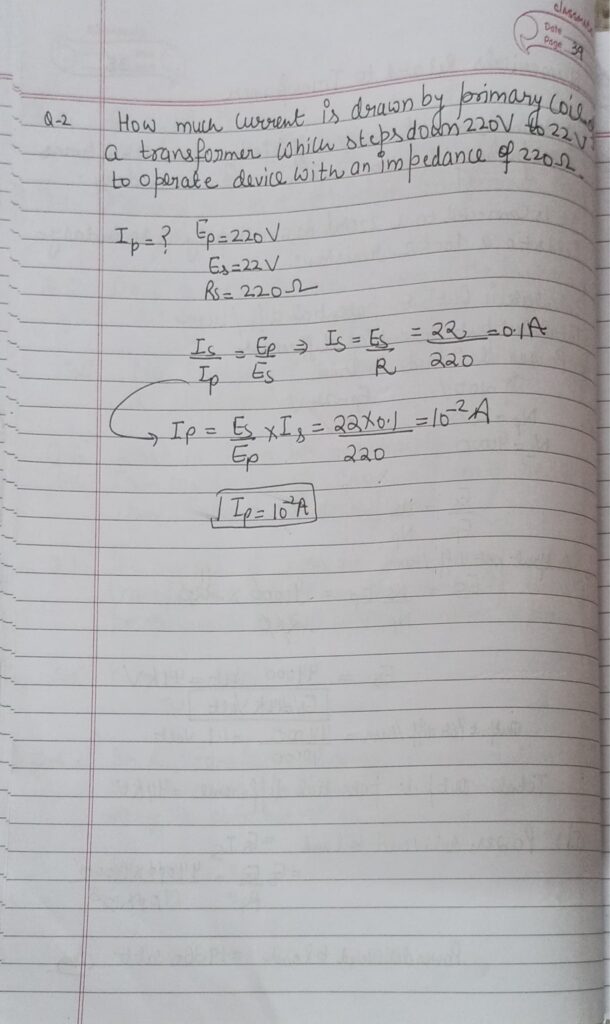 classmate
Date
Page 39
Q-2 How much current is drawn by primary coil of
a transformer which steps down 220V to 22V
to operate device with an impedance of 220Ω.
Ip = ? Ep = 220V
Es = 22V
Rs = 220Ω
Is/Ip = Ep/Es ⇒ Is = Es/R = 22/220 = 0.1A
Ip = Es/Ep × Is = 22×0.1/220 = 10⁻² A
Ip = 10⁻²A